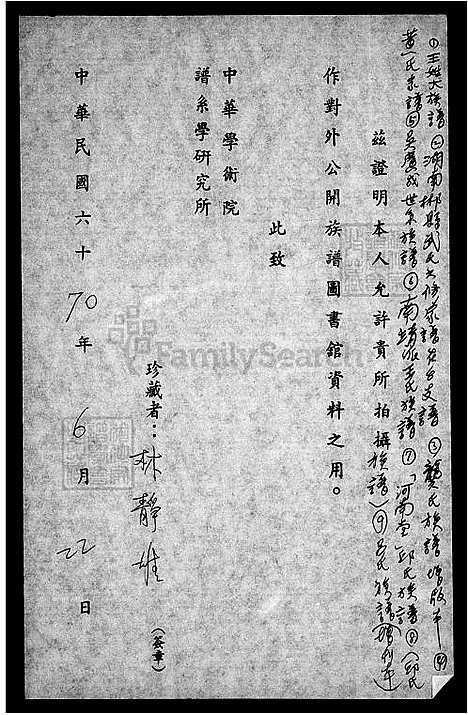 ①王姓大族譜②湖南郴縣武氏六修家譜名台支譜③龔氏族譜增版本④
黃氏家譜⑤吳廣戍世系族譜⑥南靖派王氏族譜⑦「河南堂」邱氏族譜⑧(邱氏
族譜)⑨呂氏族譜(增刊本)
茲證明本人允許貴所拍攝
作對外公開族譜圖書館資料之用。
此致
中華學術院
譜系學研究所
珍藏者:林靜雄(簽章)
中華民國六十70年6月22日
FamilySearch